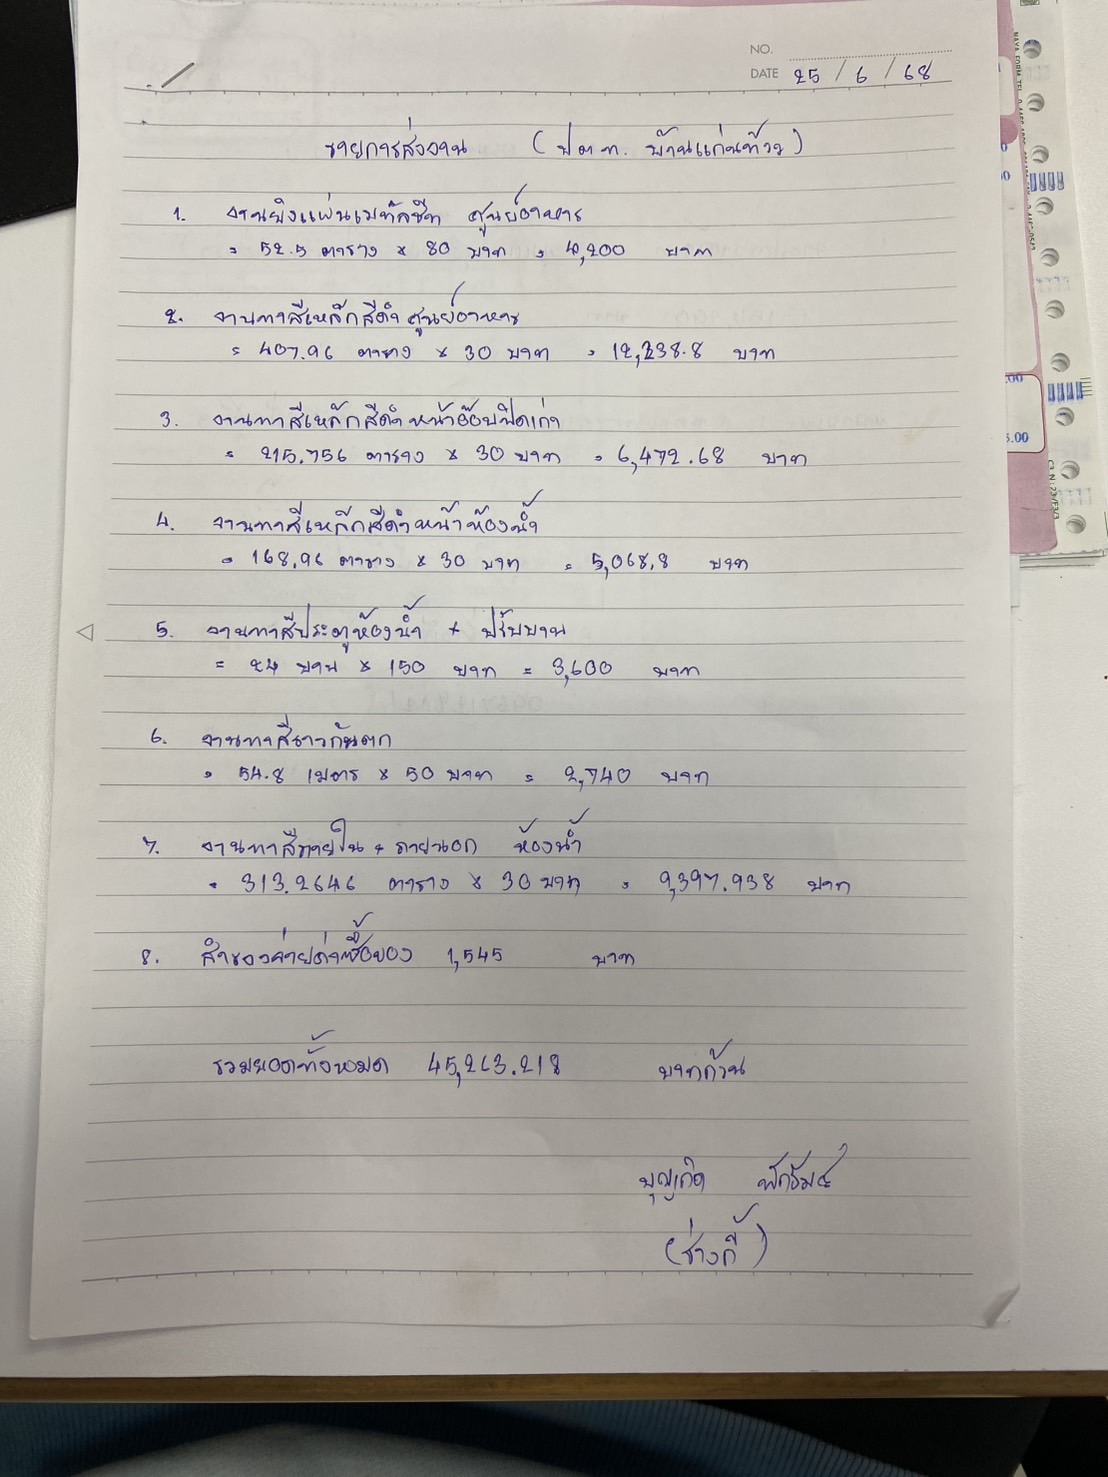 NO.
DATE 25 / 6 / 68
รายการส่งงาน ( ปตท. บ้านแก่นท้าว )
1. งานยิงแผ่นเมทัลชีท ศูนย์อาหาร
= 52.5 ตาราง x 80 บาท = 4,200 บาท
2. งานทาสีเหล็กสีดำ ศูนย์อาหาร
= 407.96 ตาราง x 30 บาท = 12,238.8 บาท
3. งานทาสีเหล็กสีดำ หน้า
= 215.756 ตาราง x 30 บาท = 6,472.68 บาท
4. งานทาสีเหล็กสีดำหน้าห้องน้ำ
= 168.96 ตาราง x 30 บาท = 5,068.8 บาท
5. งานทาสีประตูห้องน้ำ + ปรับบาน
= 24 บาน x 150 บาท = 3,600 บาท
6. งานทาสีราวกันตก
= 54.8 เมตร x 50 บาท = 2,740 บาท
7. งานทาสีภายใน + ภายนอก ห้องน้ำ
= 313.2646 ตาราง x 30 บาท = 9,397.938 บาท
8. สำรองจ่ายค่าซื้อของ 1,545 บาท
รวมยอดทั้งหมด 45,263.218 บาทถ้วน
บุญเกิด
(ช่างกี้)